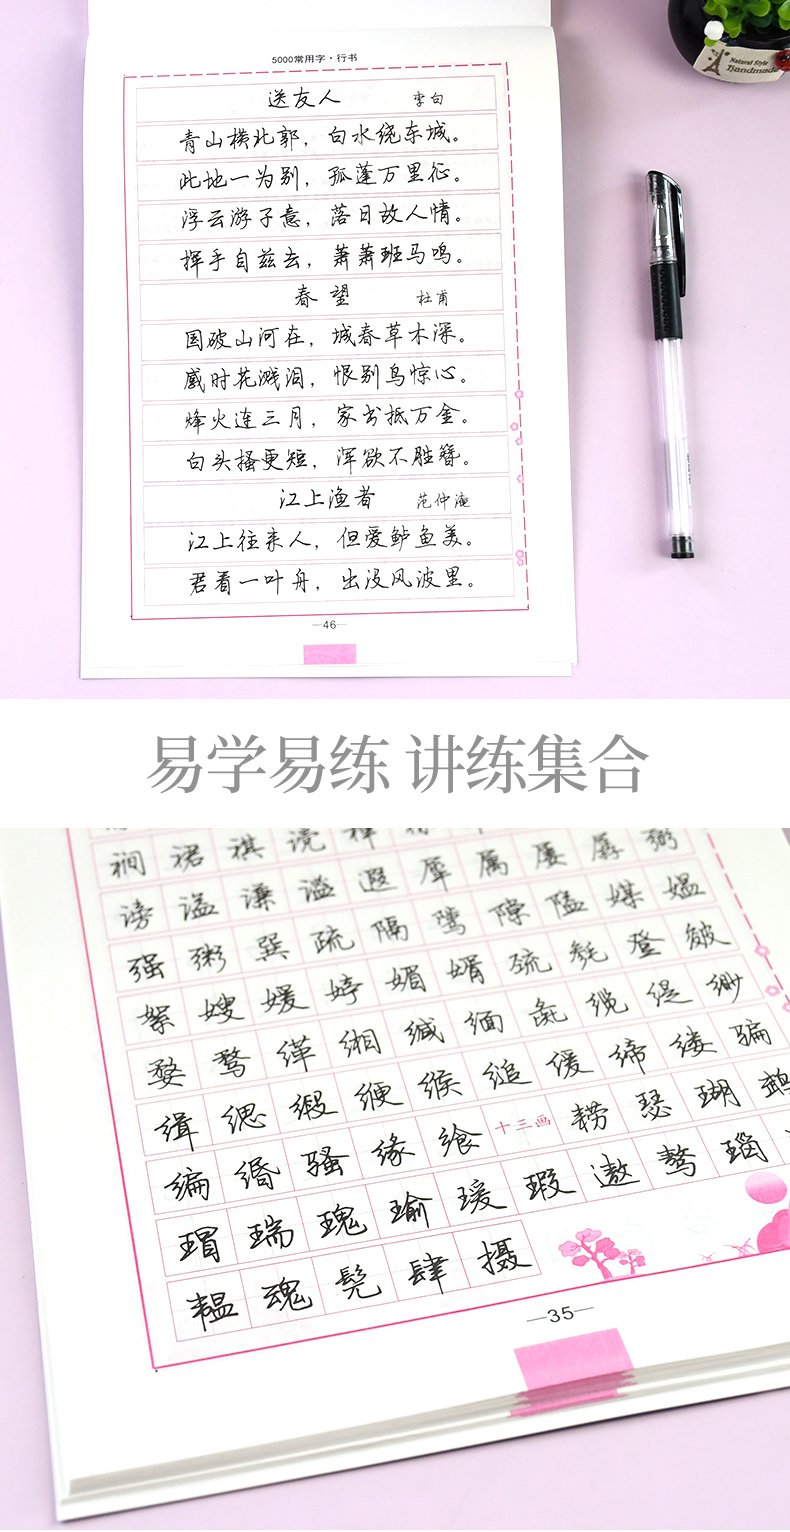 5000常用字·行书
送友人 李白
青山横北郭，白水绕东城。
此地一为别，孤蓬万里征。
浮云游子意，落日故人情。
挥手自兹去，萧萧班马鸣。
春望 杜甫
国破山河在，城春草木深。
感时花溅泪，恨别鸟惊心。
烽火连三月，家书抵万金。
白头搔更短，浑欲不胜簪。
江上渔者 范仲淹
江上往来人，但爱鲈鱼美。
君看一叶舟，出没风波里。
—46—
Natural Style
handmade
易学易练 讲练集合
裥裙祺谠禅
谤谥谦谥遐犀属屡孱弼
强粥巽疏隔骘隙隘媒媪
絮嫂媛婷媚婿巯毵登皴
婺骛缂缃缄缅彘缆缇缈
缉缌缎缏缑缒缓缔缕骗
编缗骚缘飨 十三画 耢瑟瑚鹉
瑁瑞瑰瑜瑗瑕遨骜瑙
韫魂髡肆摄
—35—